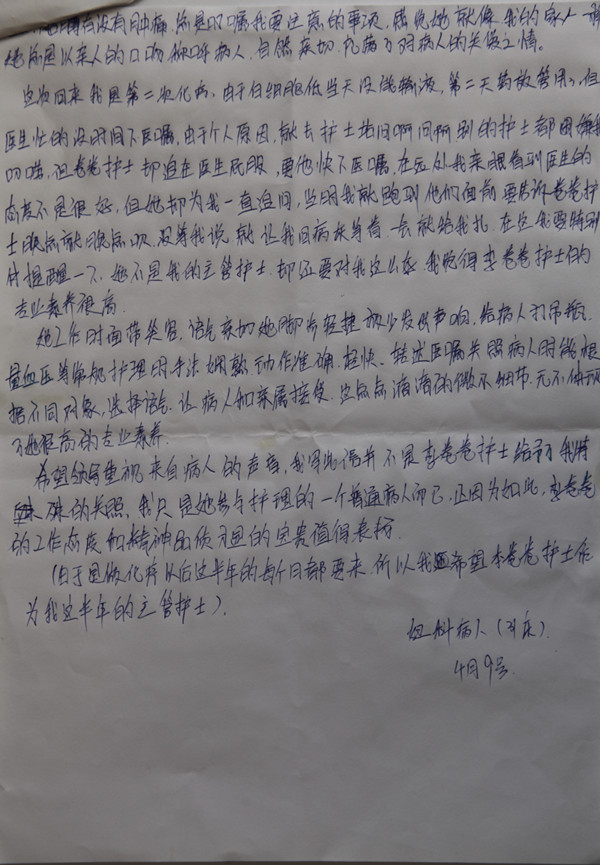 有没有肿痛,总是叮嘱我要注意的事项,感觉她就像我的家人一样
她总是以亲人的口吻称呼病人,自然亲切,充满了对病人的关爱之情。
这次回来我是第二次化疗,由于白细胞低当天没能输液,第二天药放管用,但
医生忙的没时间下医嘱,由于个人原因,就去护士站问啊问啊别的护士都因嫌我
叨唠,但卷卷护士却追在医生屁股,要他快下医嘱,在远处我亲眼看到医生的
态度不是很好,但她却为我一直追问,当时我就跑到他们面前要告诉卷卷护
士晚点就晚点吧,没等我说就让我回病床等着一会就给我扎,在这我要特别
的提醒一下,她不是我的主管护士,却还要对我这么好,我觉得李卷卷护士的
专业素养很高
她工作时面带笑容,语气亲切她脚步轻捷减少发出声响,给病人打吊瓶,
量血压等细规护理时手法娴熟动作准确、轻快、转述医嘱关照病人时能根
据不同对象,选择语气,让病人和亲属接受,这点点滴滴的微不细节,无不体现
了她很高的专业素养.
希望领导重视来自病人的声音,我写此信并不是李卷卷护士给予了我特
殊的关照,我只是她参与护理的一个普通病人而已,正因为如此,李卷卷
的工作态度和精神品质才因的宝贵值得表扬
(由于因做化疗以后这半年的每个月都要来,所以我还希望李卷卷护士作
为我这半年的主管护士).
妇科病人()
4月9号.